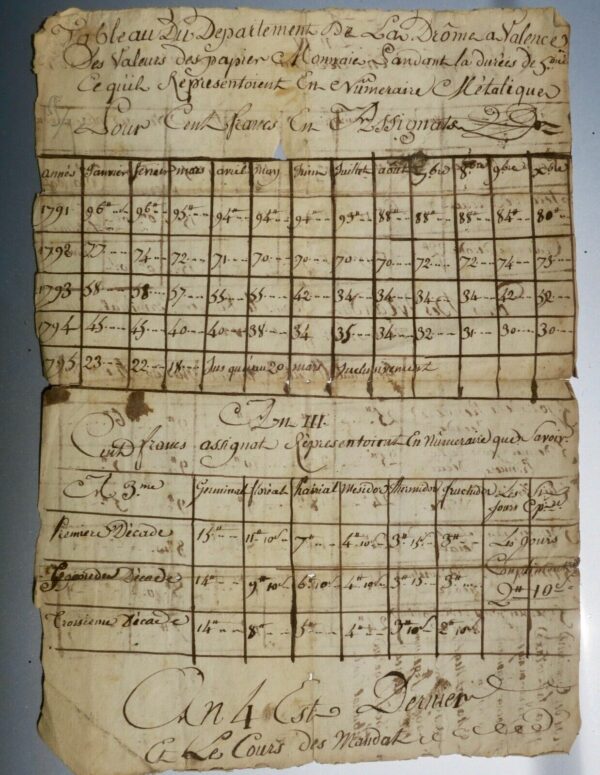 Tableau Du Departement De La Drôme a Valence
Des Valeurs des papier Monnaie Pandant la durées de 5
Ce quil Représentoient En Numeraire Métalique
Pour Cent francs En Assignats
années Janvier fevrier mars avril may Juin Juillet aout 7bre 8bre 9bre Xbre
1791 96# 96# 95# 94# 94# 94# 93# 88# 88# 88# 84# 80#
1792 77 74 72 71 70 70 70 70 72 72 74 75
1793 58 58 57 55 55 42 34 34 34 34 42 52
1794 45 45 40 40 38 34 35 34 32 31 30 30
1795 23 22 18 Jusqu'au 20 mars
An III
Cent francs assignat Réprésentoient En numéraire que Savoir
An 3.me Germinal floréal Prairial Mesidor thermidor fructidor Les Jours
Premiere Décade 15# 11# 10s 7# 4# 10s 3# 15s 3# Les Jours
Segonde Décade 14# 9# 10s 6# 10s 4# 10s 3# 15s 3# 2# 10s
Troisieme Décade 14# 8# 5# 4# 3# 10s 2# 10s
An 4 Est Dernier
Et Le Cours des Mandat